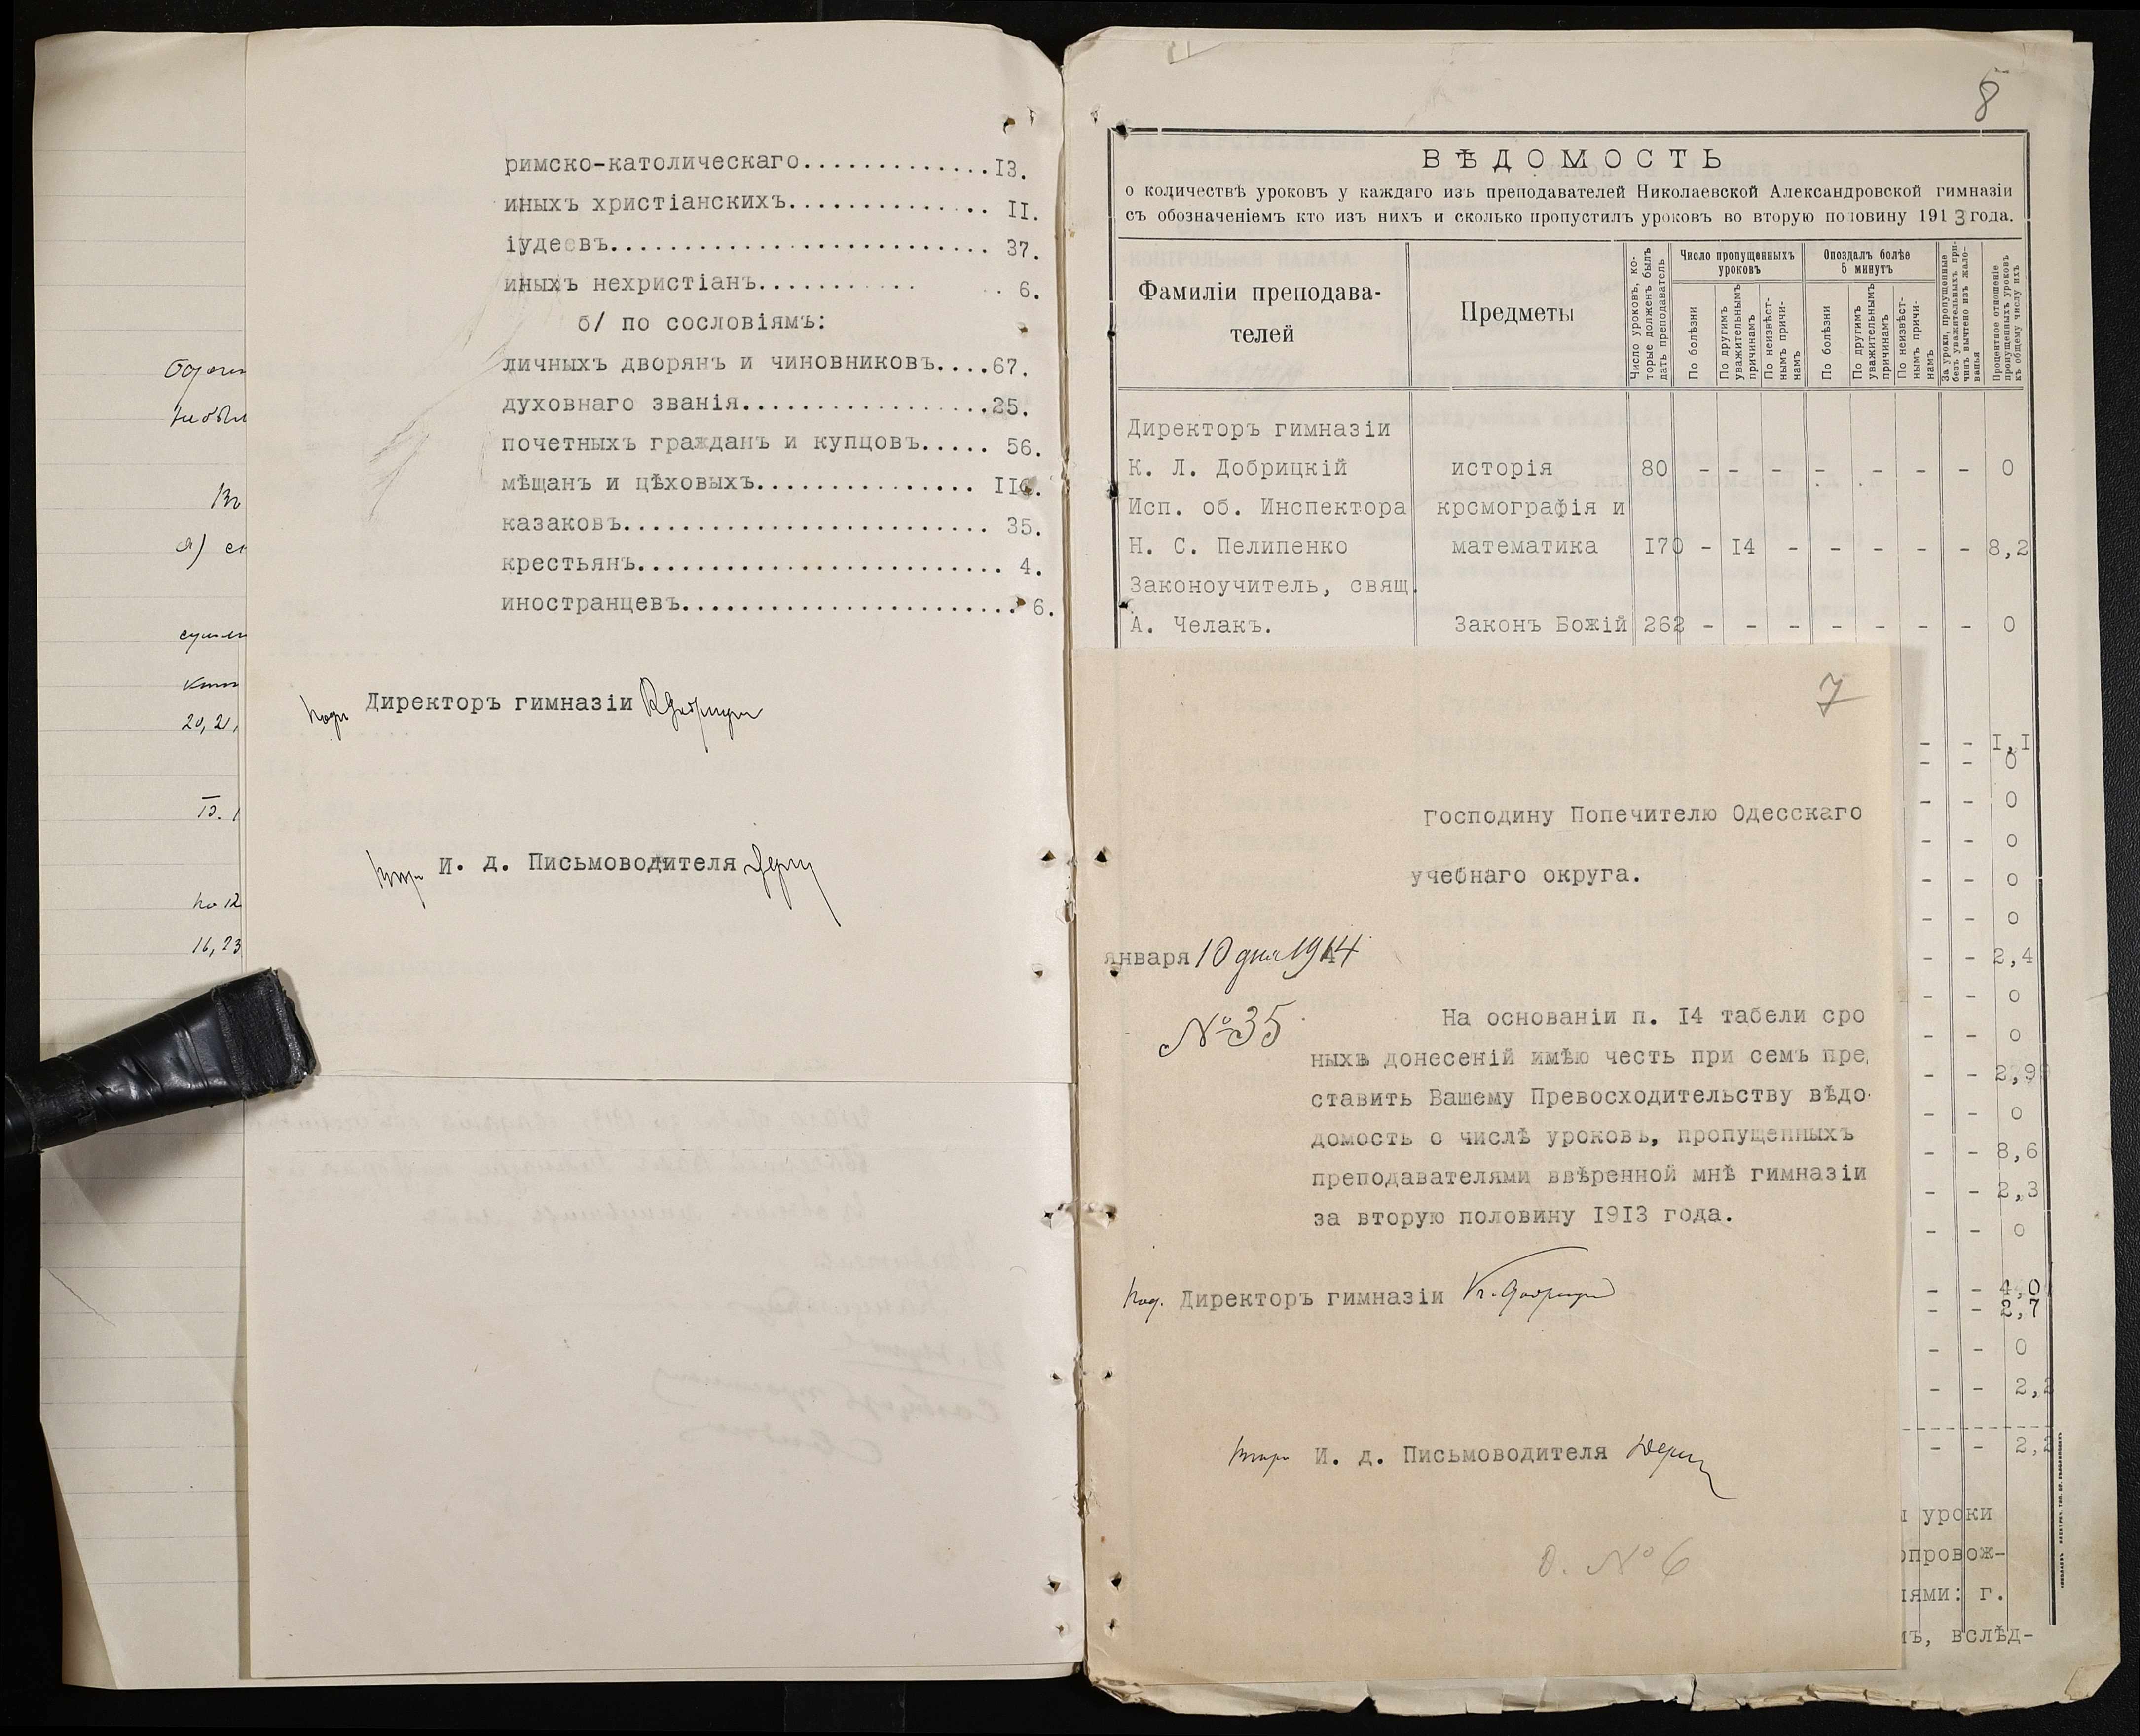 римско-католическаго..............I3.
иныхъ христіанскихъ............... II.
іудеевъ.......................... 37.
иныхъ нехристіанъ........... . . 6.
б/ по сословіямъ:
личныхъ дворянъ и чиновниковъ....67.
духовнаго званія.................25.
почетныхъ гражданъ и купцовъ..... 56.
мѣщанъ и цѣховыхъ...............
казаковъ......................... 35.
крестьянъ......................... 4.
иностранцевъ....................... 6.
Директоръ гимназіи
И. д. Письмоводителя
20, 21,
16, 23
8
ВѢДОМОСТЬ
о количествѣ уроковъ у каждаго изъ преподавателей Николаевской Александровской гимназіи
съ обозначеніемъ кто изъ нихъ и сколько пропустилъ уроковъ во вторую половину 1913 года.
Фамиліи преподава-
телей
Предметы
Число уроковъ, ко-
торые долженъ былъ
дать преподаватель
Число пропущенныхъ
уроковъ
По болѣзни
По другимъ
уважительнымъ
причинамъ
По неизвѣст-
нымъ причи-
намъ
Опоздалъ болѣе
5 минутъ
По болѣзни
По другимъ
уважительнымъ
причинамъ
По неизвѣст-
нымъ причи-
намъ
За уроки, пропущенные
безъ уважительныхъ при-
чинъ вычтено изъ жало-
ванья
Процентное отношеніе
пропущенныхъ уроковъ
къ общему числу ихъ
Директоръ гимназіи
К. Л. Добрицкій исторія 80 - - - - - - - 0
Исп. об. Инспектора крсмографія и
Н. С. Пелипенко математика I70 - I4 - - - - - 8,2
Законоучитель, свящ.
А. Челакъ. Законъ Божій 262 - - - - - - - 0
- - I,I
- - 0
- - 0
- - 0
- - 0
- - 0
- - 2,4
- - 0
- - 0
- - 2,9
- - 0
- - 8,6
- - 2,3
- - 0
- - 4,0
- - 2,7
- - 0
- - 2,2
- - 2,2
уроки
опровож-
іями: г.
ъ, вслѣд-
7
Господину Попечителю Одесскаго
учебнаго округа.
января 10 дня 1914
№ 35
На основаніи п. I4 табели сро
ныхъ донесеній имѣю честь при семъ пре
ставить Вашему Превосходительству вѣдо
домость о числѣ уроковъ, пропущенныхъ
преподавателями ввѣренной мнѣ гимназіи
за вторую половину I9I3 года.
Директоръ гимназіи
И. д. Письмоводителя
О. № 6